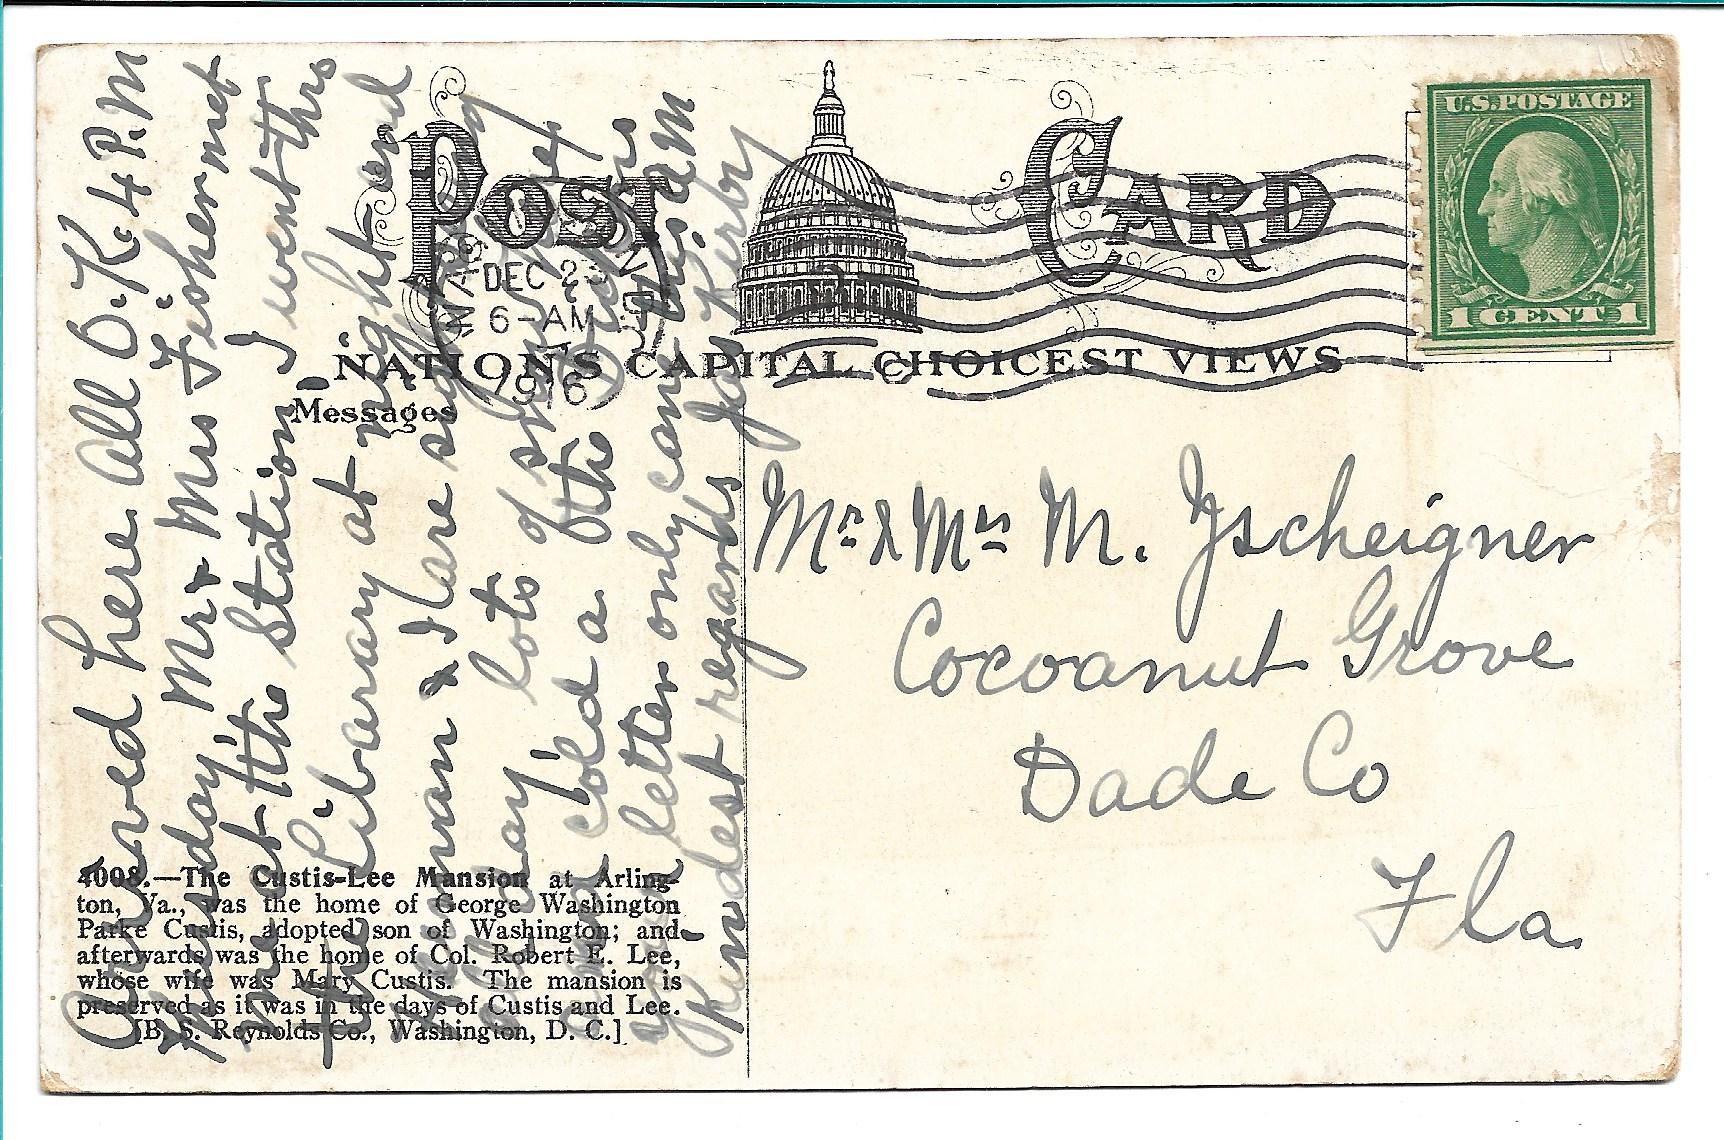 POST CARD
U.S. POSTAGE
1 CENT 1
WASH
DEC 2
6-AM
1916
NATION'S CAPITAL CHOICEST VIEWS
Messages
Arrived here all O.K. 4 P.M
Thursday Mr & Mrs Fisher met
me at the Station I went thro
the Librarary at night and
Herman & I are
all day lots of
a cold a
your letter only came this AM
Kindest regards Jay Kirby
Mr & Mrs M. Tscheigner
Cocoanut Grove
Dade Co
Fla.
4008.—The Custis-Lee Mansion at Arling-
ton, Va., was the home of George Washington
Parke Custis, adopted son of Washington; and
afterwards was the home of Col. Robert E. Lee,
whose wife was Mary Custis. The mansion is
preserved as it was in the days of Custis and Lee.
[B. S. Reynolds Co., Washington, D. C.]